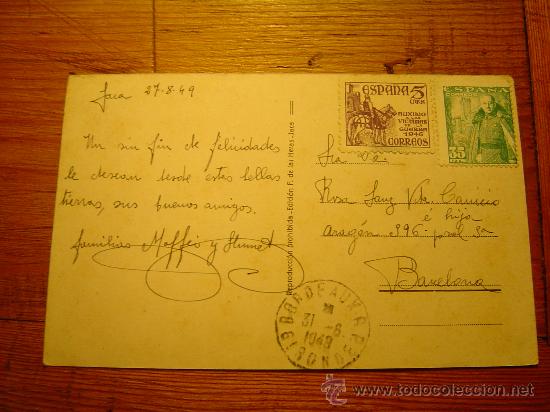 Jaca 27-8-49
Un sin fin de felicidades
le desean desde estas bellas
tierras, sus buenos amigos.
familias Maffeo y
Reproducción prohibida - Edición F. de las Heras - Jaca
ESPAÑA 5
CTS
AUXILIO
A LAS
VICTIMAS
DE LA
GUERRA
1946
CORREOS
ESPAÑA
35
Sra Da
Rosa Sanz Vda
é hija
Aragón
Barcelona
BORDEAUX R.P.
31-8
1949
GIRONDE
todocoleccion.net
www.todocoleccion.net